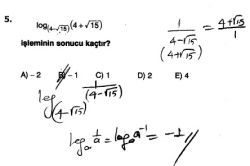 5. log₍₄₋√₁₅₎(4 + √15)
işleminin sonucu kaçtır?
A) – 2 B) – 1 C) 1 D) 2 E) 4
1/(4-√15) = (4+√15)/1
(4+√15)
log₍₄₋√₁₅₎ 1/(4-√15)
logₐ 1/a = logₐ a⁻¹ = -1 //